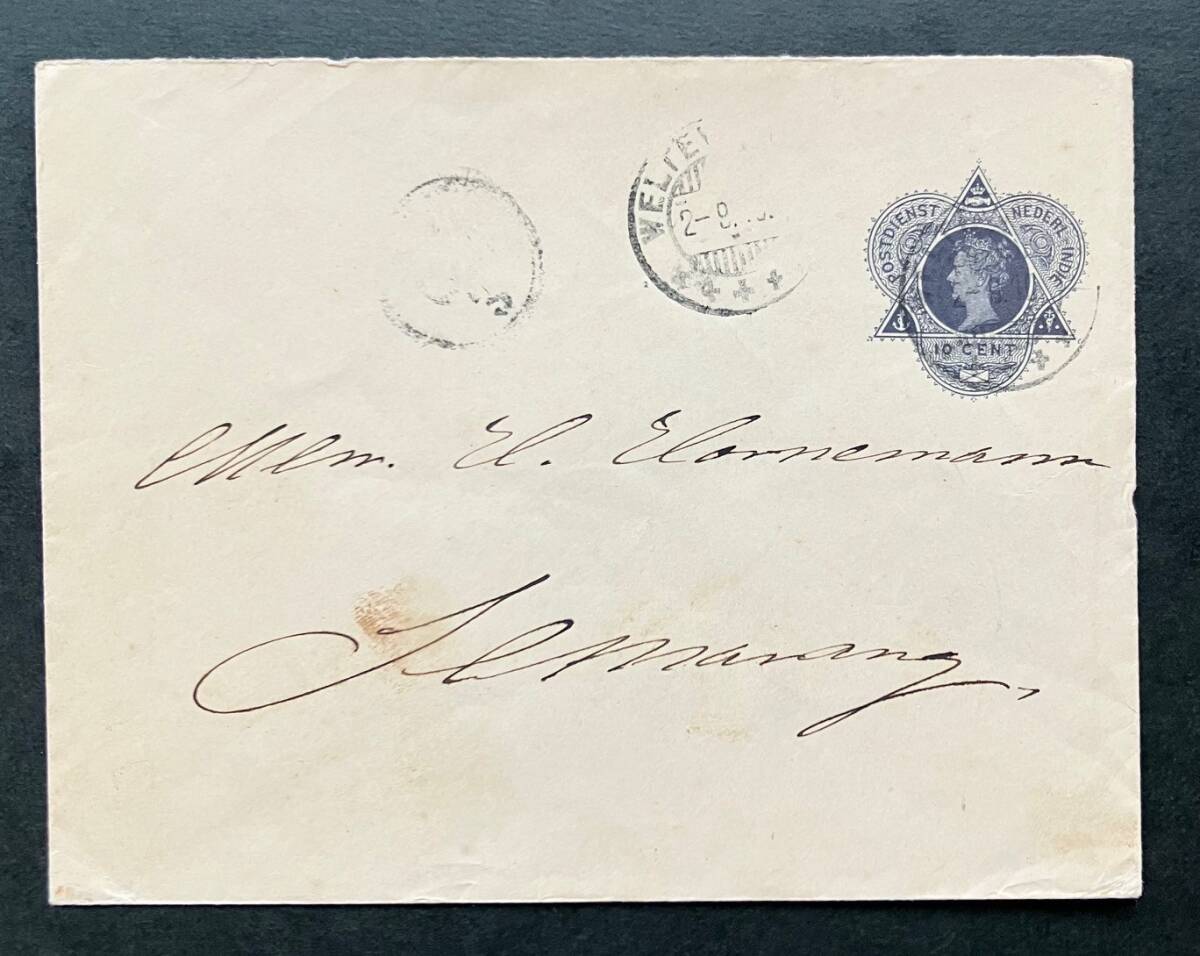 WELTE
2-8.
POSTDIENST NEDERL-INDIE
10 CENT
Mevr. H. Hornemann
Semarang,